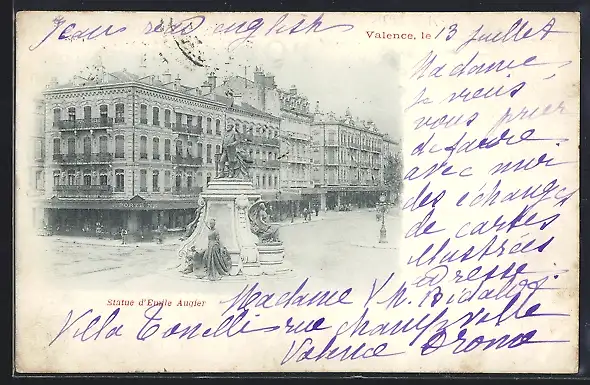 Jeau read english
Valence, le 13 Juillet
Madame
je viens
vous prier
de faire
avec moi
des échanges
de cartes
illustrées
Adresse
Statue d'Emile Augier
Madame Vve Bidalot
Villa rue Championville
Valence Drome